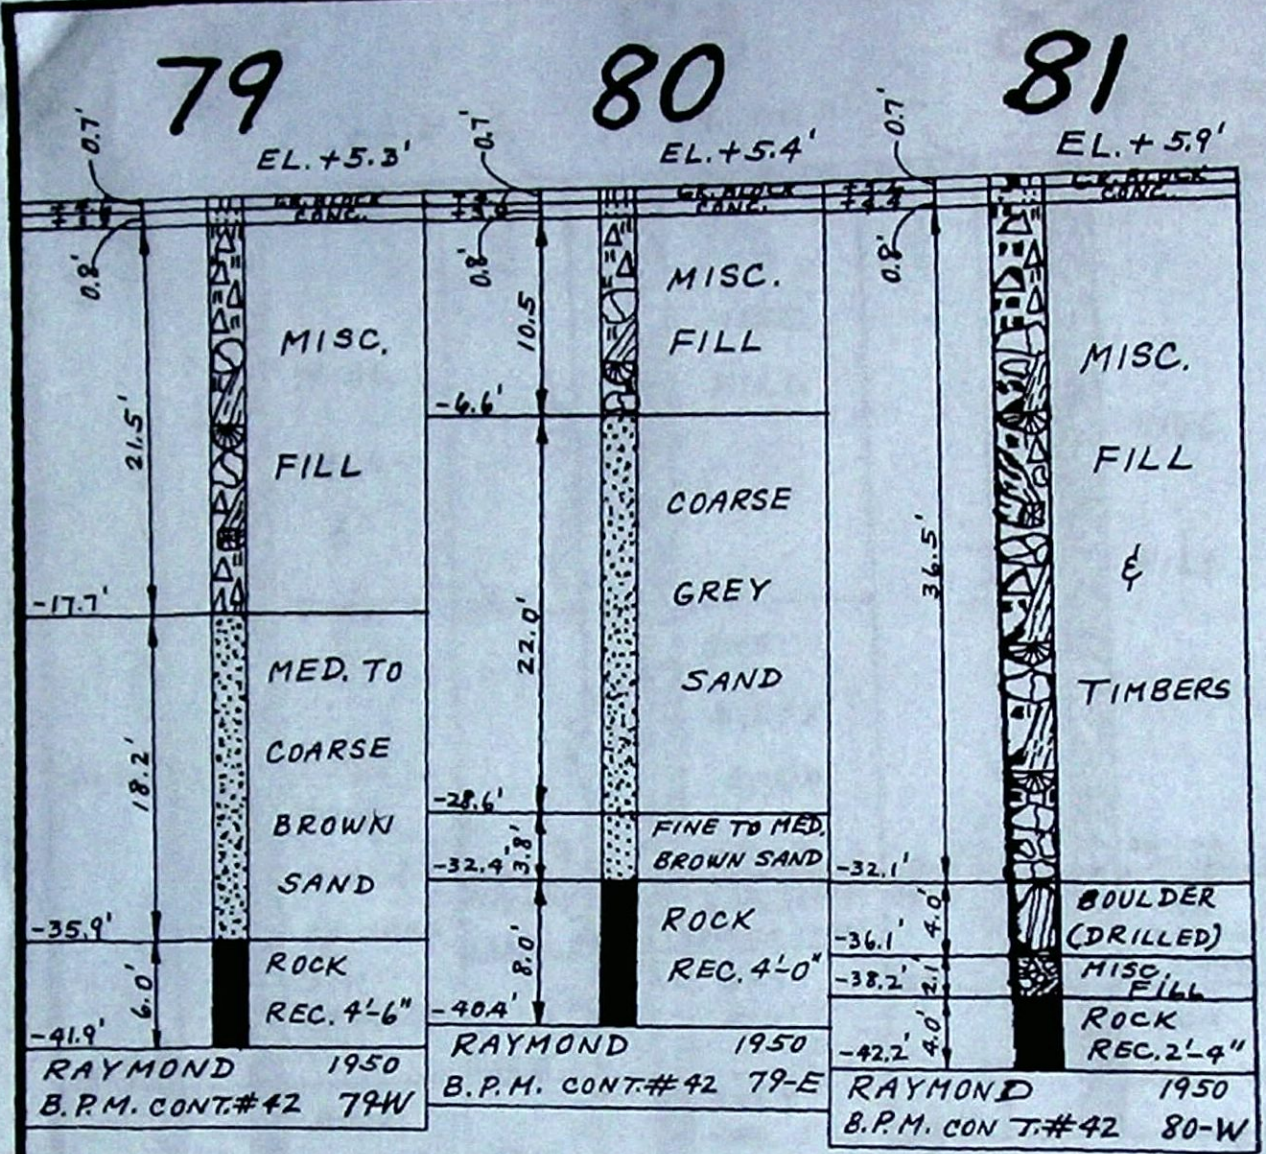 79
EL. +5.3'
0.7'
GR. BLOCK
CONC.
0.8'
21.5'
MISC.
FILL
-17.7'
18.2'
MED. TO
COARSE
BROWN
SAND
-35.9'
6.0'
ROCK
REC. 4'-6"
-41.9'
RAYMOND 1950
B.P.M. CONT.#42 79-W
80
EL. +5.4'
0.7'
GR. BLOCK
CONC.
0.8'
10.5
MISC.
FILL
-6.6'
22.0'
COARSE
GREY
SAND
-28.6'
3.8'
FINE TO MED.
BROWN SAND
-32.4'
8.0'
ROCK
REC. 4'-0"
-40.4'
RAYMOND 1950
B.P.M. CONT.#42 79-E
81
EL. +5.9'
0.7'
GR. BLOCK
CONC.
+4.4
0.8'
36.5'
MISC.
FILL
&
TIMBERS
-32.1'
4.0'
BOULDER
(DRILLED)
-36.1'
2.1'
MISC.
FILL
-38.2'
4.0'
ROCK
REC. 2'-4"
-42.2'
RAYMOND 1950
B.P.M. CON T.#42 80-W